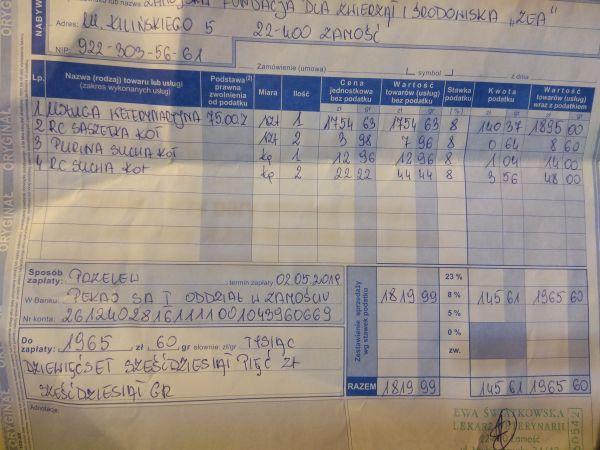 NABYWCA
lub nazwa ZAMOJSKA FUNDACJA DLA ZWIERZĄT I ŚRODOWISKA „ZEA”
Adres: UL. KILIŃSKIEGO 5 22-400 ZAMOŚĆ
NIP: 922-303-56-61
Zamówienie (umowa) symbol z dnia
Lp. Nazwa (rodzaj) towaru lub usługi (zakres wykonanych usług) Podstawa(2) prawna zwolnienia od podatku Miara Ilość Cena jednostkowa bez podatku zł gr Wartość towarów (usług) bez podatku zł gr Stawka podatku (%) Kwota podatku zł gr Wartość towarów (usług) wraz z podatkiem zł gr
1 USŁUGA WETERYNARYJNA 75.00Z szt 1 1754 63 1754 63 8 140 37 1895 00
2 RC SASZETKA KOT szt 2 3 98 7 96 8 0 64 8 60
3 PURINA SUCHA KOT kg 1 12 96 12 96 8 1 04 14 00
4 RC SUCHA KOT kg 2 22 22 44 44 8 3 56 48 00
Sposób zapłaty: PRZELEW termin zapłaty 02.05.2018
W Banku: PEKAO SA I ODDZIAŁ W ZAMOŚCIU
Nr konta: 26124028161111001043960669
Zestawienie sprzedaży wg stawek podatku
23 %
1819 99 8 % 145 61 1965 60
5 %
0 %
zw.
Do zapłaty: 1965 zł 60 gr słownie: zł/gr TYSIĄC
DZIEWIĘĆSET SZEŚĆDZIESIĄT PIĘĆ ZŁ
SZEŚĆDZIESIĄT GR
RAZEM 1819 99 145 61 1965 60
Adnotacje:
EWA ŚWIATKOWSKA
LEKARZ WETERYNARII
22-400 Zamość
ORYGINAŁ
ORYGINAŁ
ORYGINAŁ
ORYGINAŁ